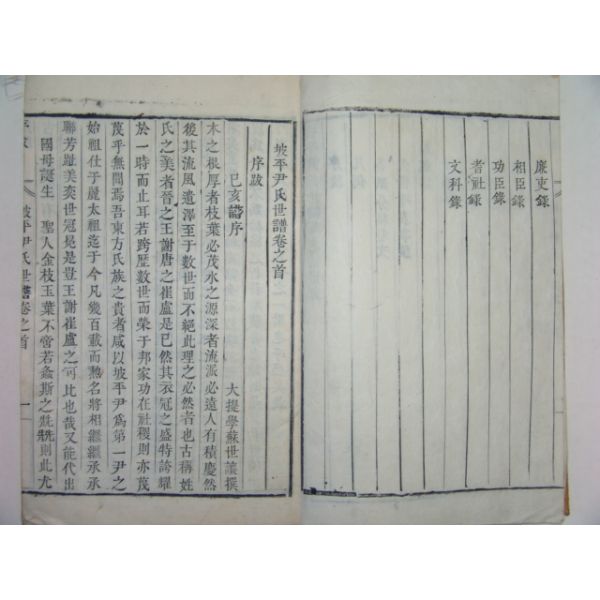 廉吏錄
相臣錄
功臣錄
耆社錄
文科錄
坡平尹氏世譜卷之首
序跋
己亥譜序
大提學蘇世讓撰
木之根厚者枝葉必茂水之源深者流派必遠人有積慶然
後其流風遺澤至于數世而不絕此理之必然者也古稱姓
氏之美者晉之王謝唐之崔盧是已然其衣冠之盛特誇耀
於一時而止耳若跨歷數世而榮于邦家功在社稷則亦茂
茂乎無聞焉吾東方氏族之貴者咸以坡平尹爲第一尹之
始祖仕于麗太祖迄于今凡幾百載而勳名將相繼繼承承
聯芳趾美奕世冠冕是豈王謝崔盧之可比也哉又能代出
國母誕生 聖人金枝玉葉不啻若螽斯之詵詵則此尤
序跋
坡平尹氏世譜卷之首
一